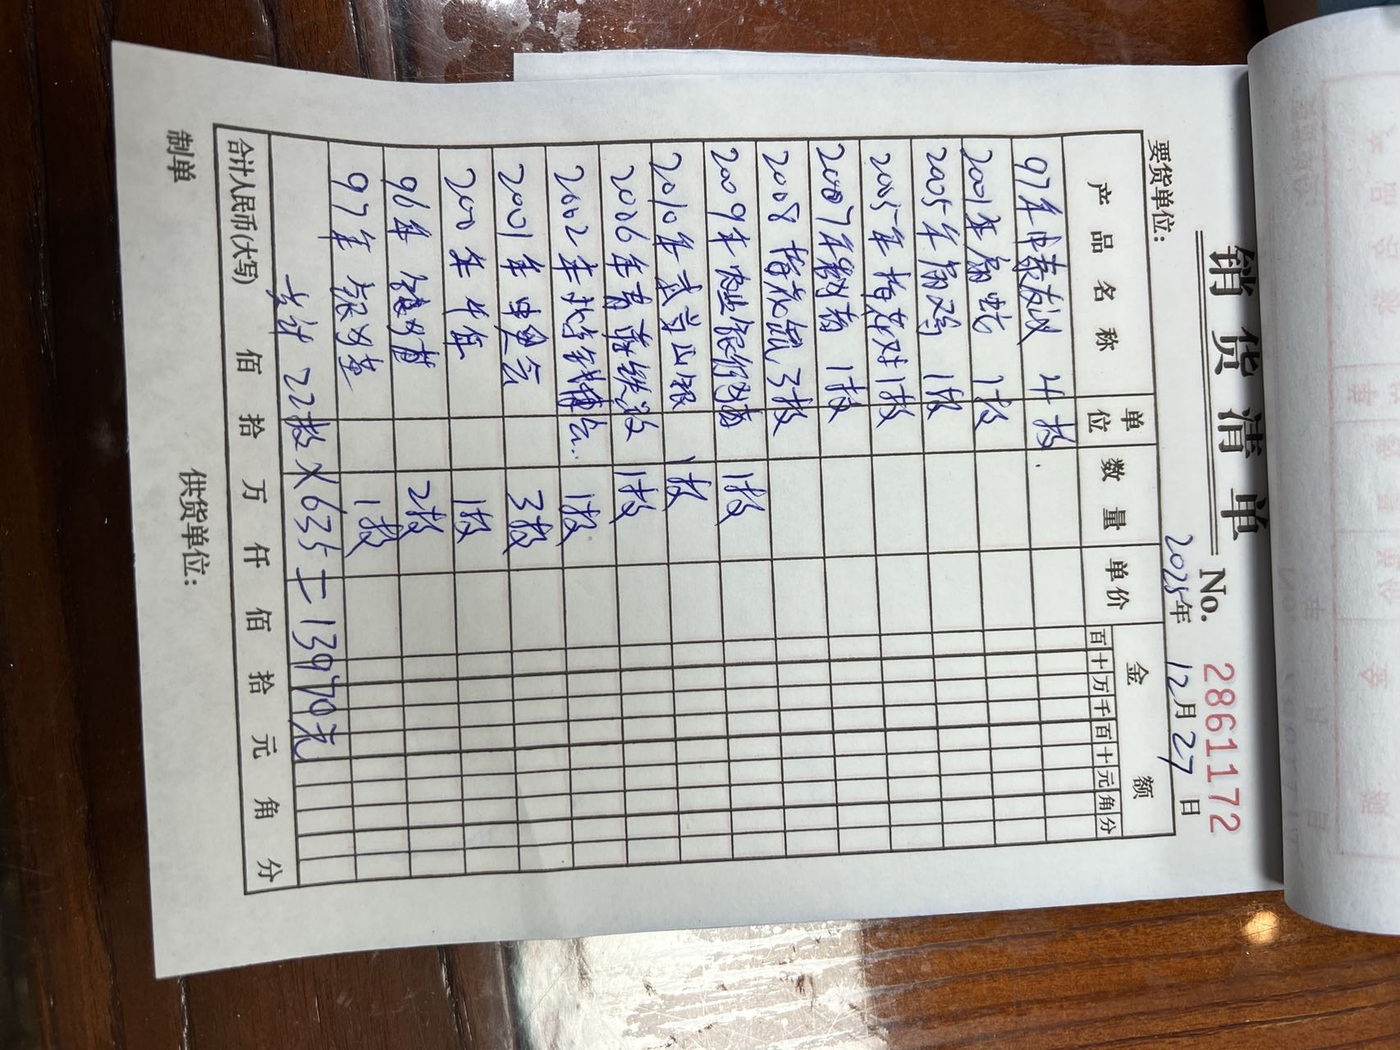 销货清单
No. 2861172
要货单位: 2025年 12月 27日
产品名称 单位 数量 单价 金额
百十万千百十元角分
97年中泰友谊 4枚
2001年扇蛇 1枚
2005年扇鸡 1枚
2005年梅花对 1枚
2007年 1枚
2008 梅花鼠 3枚
2009年农业银行 1枚
2010年武当山银 1枚
2006年青藏铁路 1枚
2002年北京钱币 1枚
2001年申奥会 3枚
200 年 1枚
96年 银 2枚
97年 银 1枚
共计 22枚×635=13970元
合计人民币(大写) 佰 拾 万 仟 佰 拾 元 角 分
制单 供货单位: